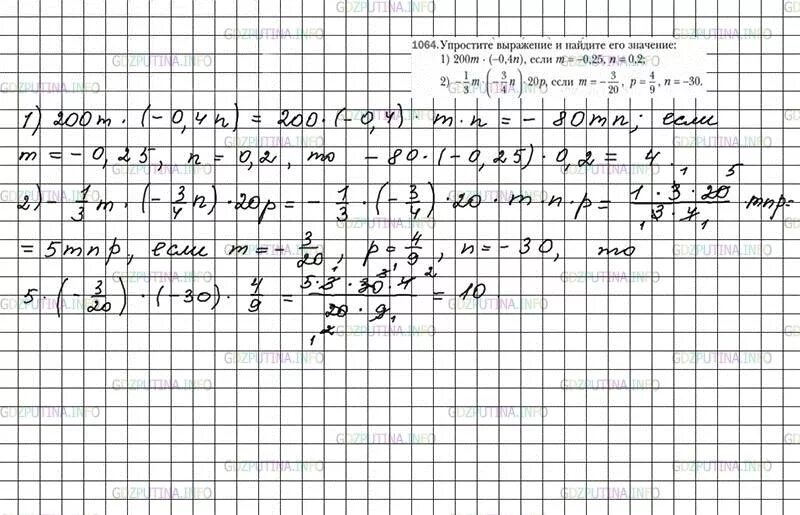 1064. Упростите выражение и найдите его значение:
1) 200m · (−0,4n), если m = −0,25, n = 0,2;
2) −1/3 m · (−3/4 n) · 20p, если m = −3/20, p = 4/9, n = −30.
1) 200m · (−0,4n) = 200·(−0,4)· m·n = − 80mn; если
m = −0,25, n = 0,2, то −80·(−0,25)·0,2 = 4.
2) −1/3 m · (−3/4 n) · 20p = −1/3 · (−3/4) · 20 · m · n · p = (1 · 3 · 20)/(3 · 4) mnp =
= 5mnp, если m = −3/20, p = 4/9, n = −30, то
5·(−3/20)·(−30)· 4/9 = (5·3·30·4)/(20·9) = 10
GDZPUTINA.INFO